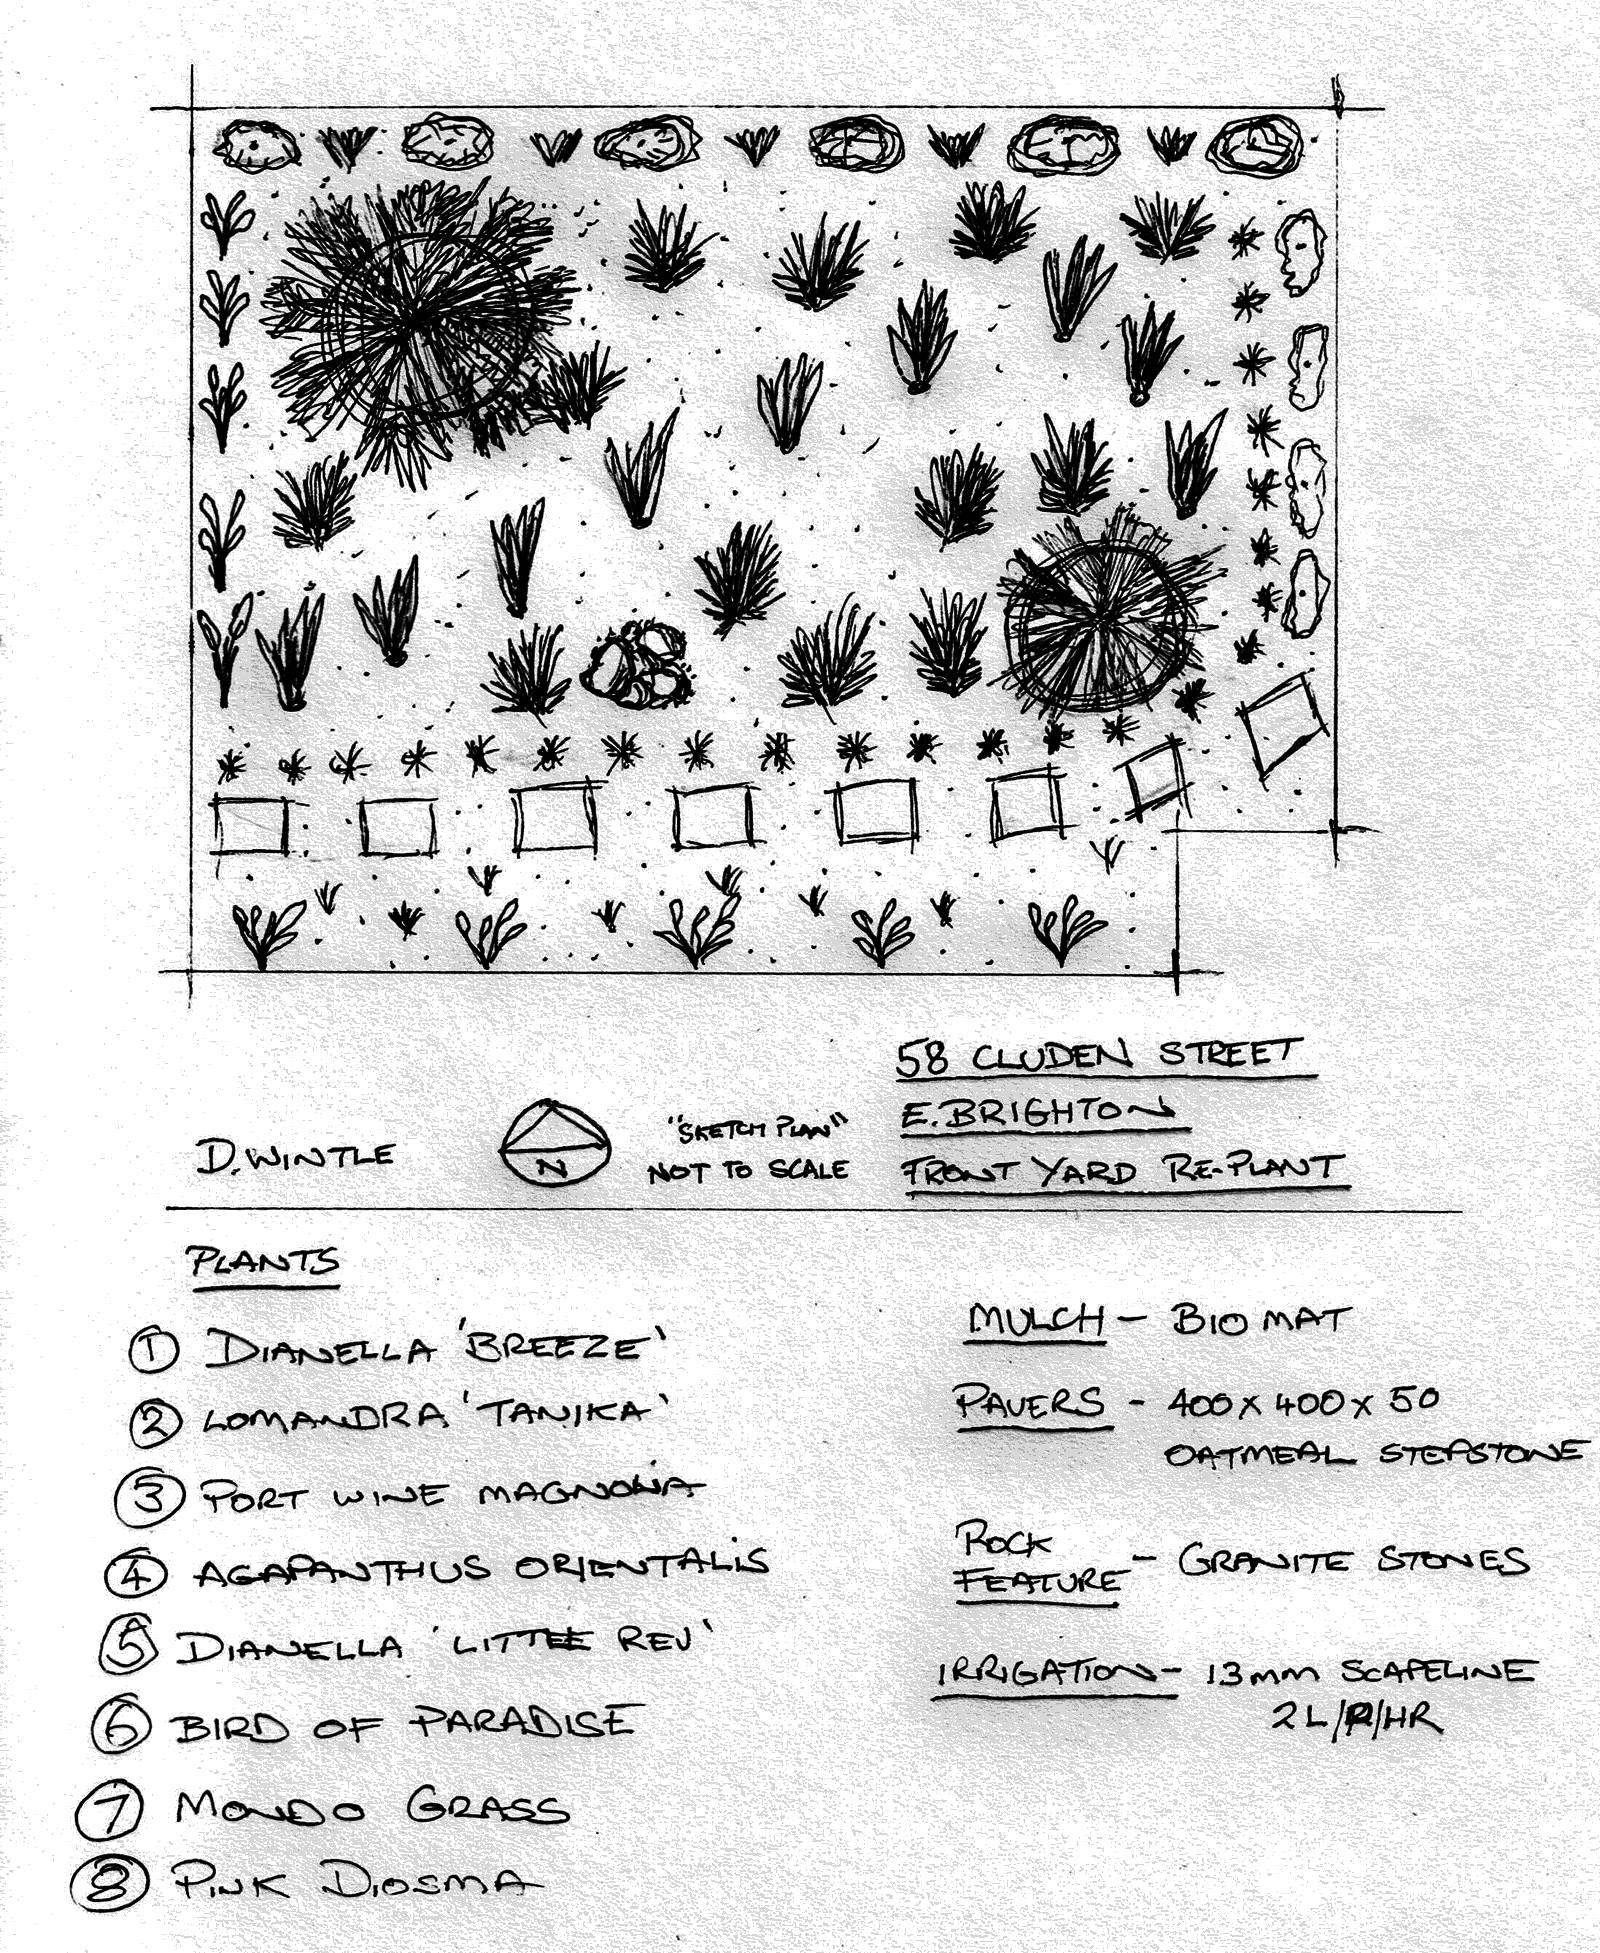 58 CLUDEN STREET
E. BRIGHTON
FRONT YARD RE-PLANT
D. WINTLE
N
"SKETCH PLAN"
NOT TO SCALE
PLANTS
① DIANELLA 'BREEZE'
② LOMANDRA 'TANIKA'
③ PORT WINE MAGNOLIA
④ AGAPANTHUS ORIENTALIS
⑤ DIANELLA 'LITTLE REV'
⑥ BIRD OF PARADISE
⑦ MONDO GRASS
⑧ PINK DIOSMA
MULCH - BIO MAT
PAVERS - 400 x 400 x 50
OATMEAL STEPSTONE
ROCK
FEATURE - GRANITE STONES
IRRIGATION - 13mm SCAPELINE
2L/ /HR